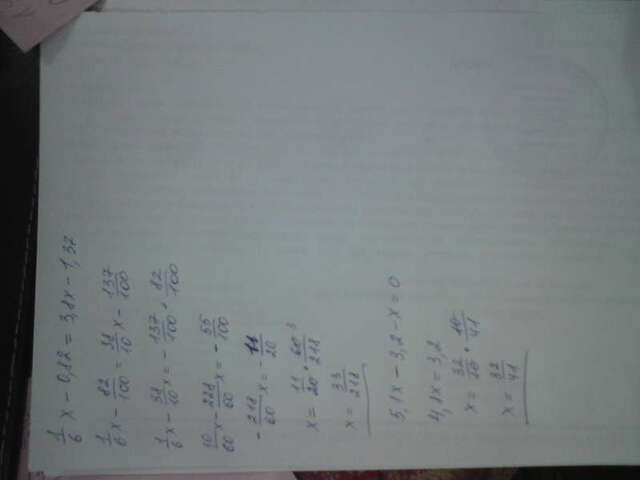 1/6 x − 0,82 = 3,8x − 1,37
1/6 x − 82/100 = 38/10 x − 137/100
1/6 x − 38/10 x = − 137/100 + 82/100
10/60 x − 228/60 x = − 55/100
− 218/60 x = − 11/20
x = 11/20 · 60/218 3
x = 33/218
5,1x − 3,2 − x = 0
4,1x = 3,2
x = 32/10 · 10/41
x = 32/41